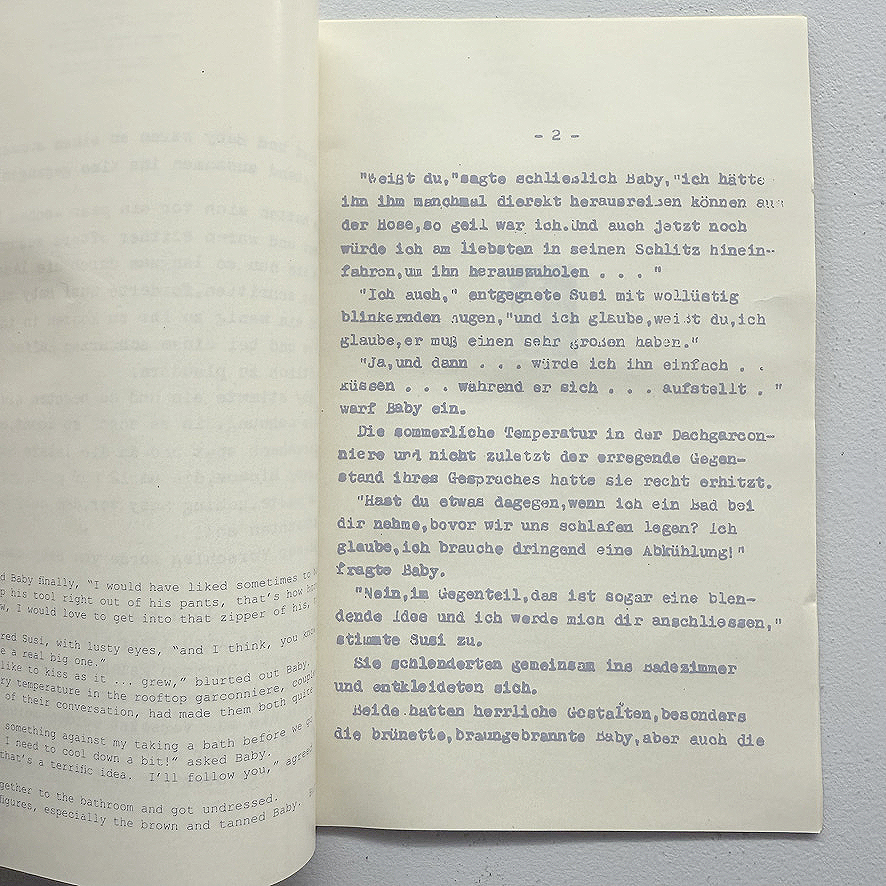 d Baby finally, "I would have liked sometimes to
p his tool right out of his pants, that's how
w, I would love to get into that zipper of his,
red Susi, with lusty eyes, "and I think, you know
e a real big one."
like to kiss as it ... grew," blurted out Baby.
ry temperature in the rooftop garconniere, coupled
of their conversation, had made them both quite
something against my taking a bath before we go
I need to cool down a bit!" asked Baby.
that's a terrific idea. I'll follow you," agreed
gether to the bathroom and got undressed.
figures, especially the brown and tanned Baby.
- 2 -
"Weißt du,"sagte schließlich Baby,"ich hätte
ihn ihm manchmal dierekt herausreisen können aus
der Hose,so geil war ich.Und auch jetzt noch
würde ich am liebsten in seinen Schlitz hinein-
fahren,um ihn herauszuholen . . . "
"Ich auch," entgegnete Susi mit wollüstig
blinkernden Augen,"und ich glaube,weißt du,ich
glaube,er muß einen sehr großen haben."
"Ja,und dann . . . würde ich ihn einfach . .
küssen . . . während er sich . . . aufstellt . "
warf Baby ein.
Die sommerliche Temperatur in der Dachgarcon-
niere und nicht zuletzt der erregende Gegen-
stand ihres Gespraches hatte sie recht erhitzt.
"Hast du etwas dagegen,wenn ich ein Bad bei
dir nehme,bovor wir uns schlafen legen? Ich
glaube,ich brauche dringend eine Abkühlung!"
fragte Baby.
"Nein,im Gegenteil,das ist sogar eine blen-
dende Idee und ich werde mich dir anschliessen,"
stimmte Susi zu.
Sie schlenderten gemeinsam ins Badezimmer
und entkleideten sich.
Beide hatten herrliche Gestalten,besonders
die brünette,braungebrannte Baby,aber auch die